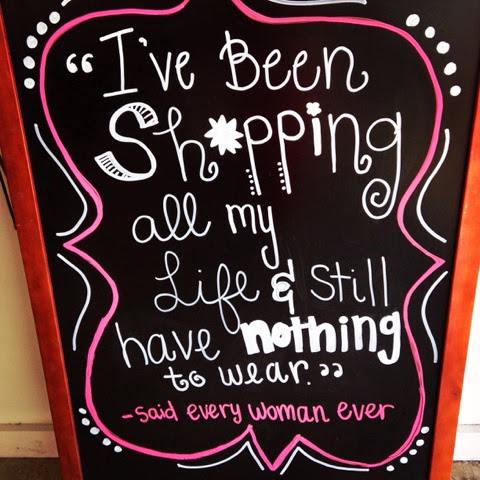 “I've Been
Shopping
all my
Life & Still
have nothing
to wear.”
-said every woman ever